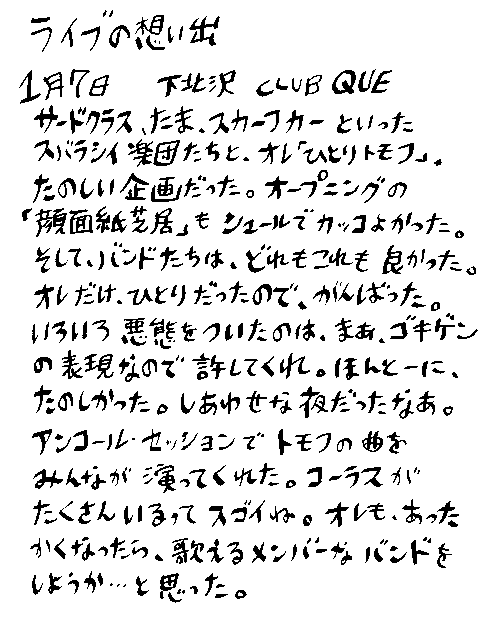 ライブの想い出
1月7日 下北沢 CLUB QUE
サードクラス、たま、スカーフカーといった
スバラシイ楽団たちと、オレ「ひとりトモフ」。
たのしい企画だった。オープニングの
「顔面紙芝居」もシュールでカッコよかった。
そして、バンドたちは、どれもこれも良かった。
オレだけ、ひとりだったので、がんばった。
いろいろ悪態をついたのは、まあ、ゴキゲン
の表現なので許してくれ。ほんとーに、
たのしかった。しあわせな夜だったなあ。
アンコール・セッションでトモフの曲を
みんなが演ってくれた。コーラスが
たくさんいるってスゴイね。オレも、あった
かくなったら、歌えるメンバーなバンドを
しようか…と思った。